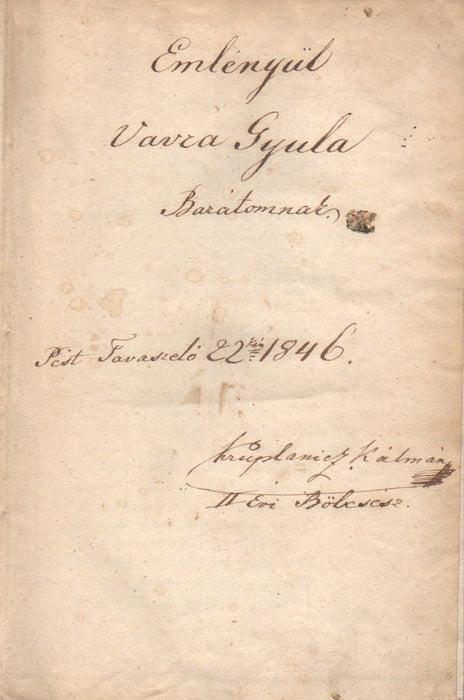 Emlényül
Vavra Gyula
Barátomnak.
Pest Tavaszelő 22kén 1846.
Kruplanicz Kálmán
II Evi Bölcsész.